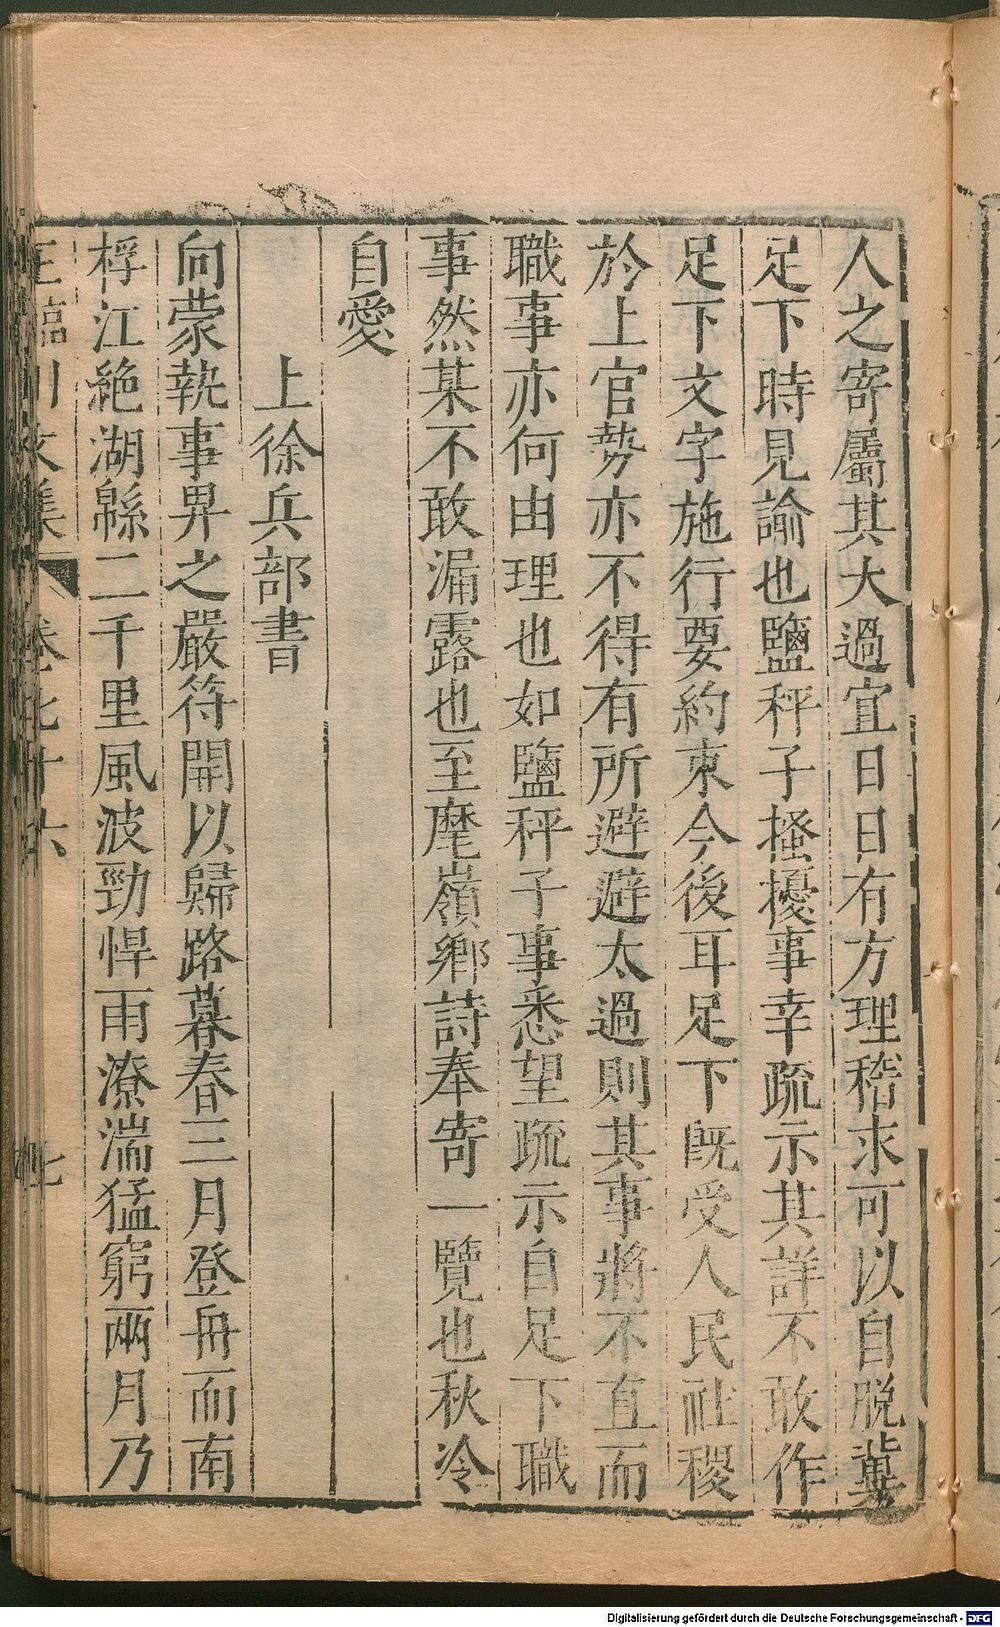 人之寄屬其大過宜日日有方理稽求可以自脫冀
足下時見諭也鹽秤子搔擾事幸疏示其詳不敢作
足下文字施行要約束今後耳足下既受人民社稷
於上官勢亦不得有所避避太過則其事將不直而
職事亦何由理也如鹽秤子事悉望疏示自足下職
事然某不敢漏露也至麾嶺鄉詩奉寄一覽也秋冷
自愛
上徐兵部書
向蒙執事畀之嚴符開以歸路暮春三月登舟而南
桴江絶湖緜二千里風波勁悍雨潦湍猛窮兩月乃
王臨川文集 卷七十六 七
Digitalisierung gefördert durch die Deutsche Forschungsgemeinschaft - DFG